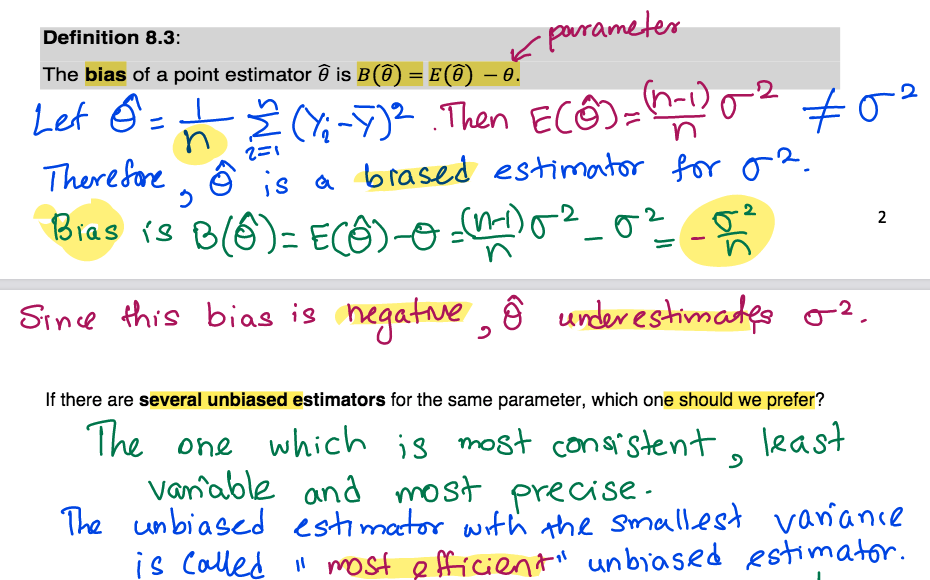 Definition 8.3:
parameter
The bias of a point estimator θ̂ is B(θ̂) = E(θ̂) − θ.
Let θ̂ = 1/n Σ_{i=1}^{n} (Y_i − Ȳ)². Then E(θ̂) = (n-1)/n σ² ≠ σ²
Therefore, θ̂ is a biased estimator for σ².
Bias is B(θ̂) = E(θ̂) − θ = (n-1)/n σ² − σ² = − σ²/n
2
Since this bias is negative, θ̂ underestimates σ².
If there are several unbiased estimators for the same parameter, which one should we prefer?
The one which is most consistent, least
variable and most precise.
The unbiased estimator with the smallest variance
is called "most efficient" unbiased estimator.